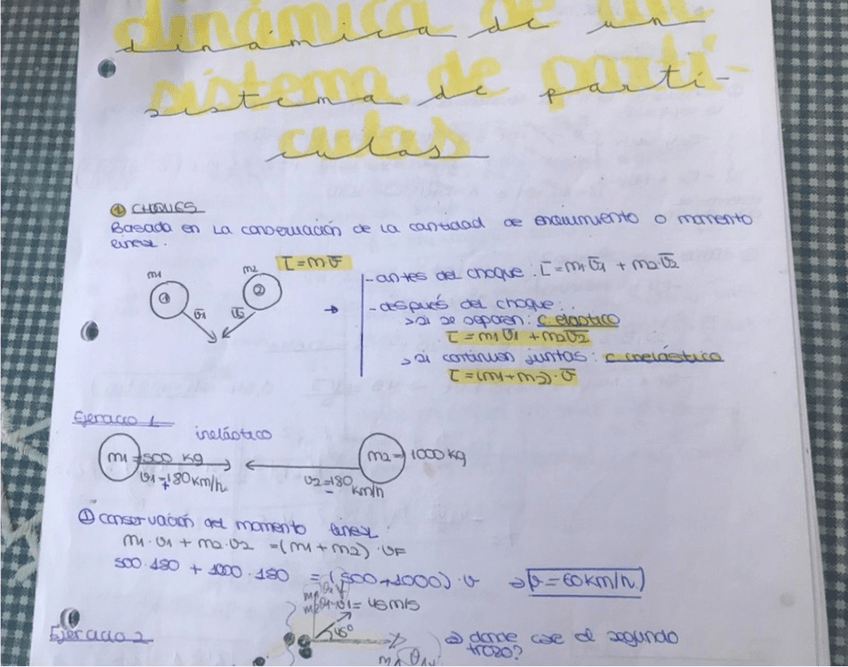 dinámica de un
sistema de partí-
culas
① CHOQUES
Basada en la conservación de la cantidad de movimiento o momento
lineal.
m1
m2
L = m v
① v1
② v2
- antes del choque: L = m1 v1 + m2 v2
- después del choque:
> si se separan: c. elástico
L = m1 v1 + m2 v2
> si continuan juntas: c. inelástico
L = (m1 + m2) · v
Ejercicio 1
inelástico
m1 = 500 kg
m2 = 1000 kg
v1 = +180 km/h
v2 = -180 km/h
① conservación del momento lineal.
m1 · v1 + m2 · v2 = (m1 + m2) · vF
500 · 180 + 1000 · 180 = (500 + 1000) · v ⇒ v = 60 km/h
v1 = 45 m/s
45°
Ejercicio 2
a) donde cae el segundo
trozo?